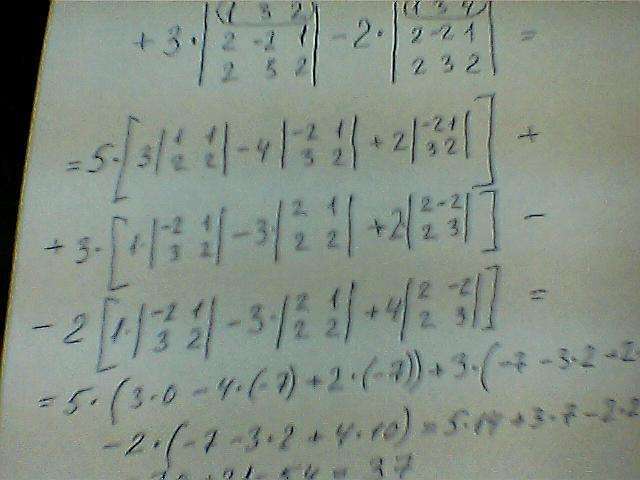 + 3 · |1 3 2; 2 -2 1; 2 3 2| - 2 · |1 3 4; 2 -2 1; 2 3 2| =
= 5 · [3 |1 1; 2 2| - 4 |-2 1; 3 2| + 2 |-2 1; 3 2|] +
+ 3 · [1 · |-2 1; 3 2| - 3 · |2 1; 2 2| + 2 |2 -2; 2 3|] -
- 2 [1 · |-2 1; 3 2| - 3 · |2 1; 2 2| + 4 |2 -2; 2 3|] =
= 5 · (3 · 0 - 4 · (-7) + 2 · (-7)) + 3 · (-7 - 3 · 2 - 2
- 2 · (-7 - 3 · 2 + 4 · 10) = 5 · 14 + 3 · 7 - 2 · 2
+ 21 - 54 = 37